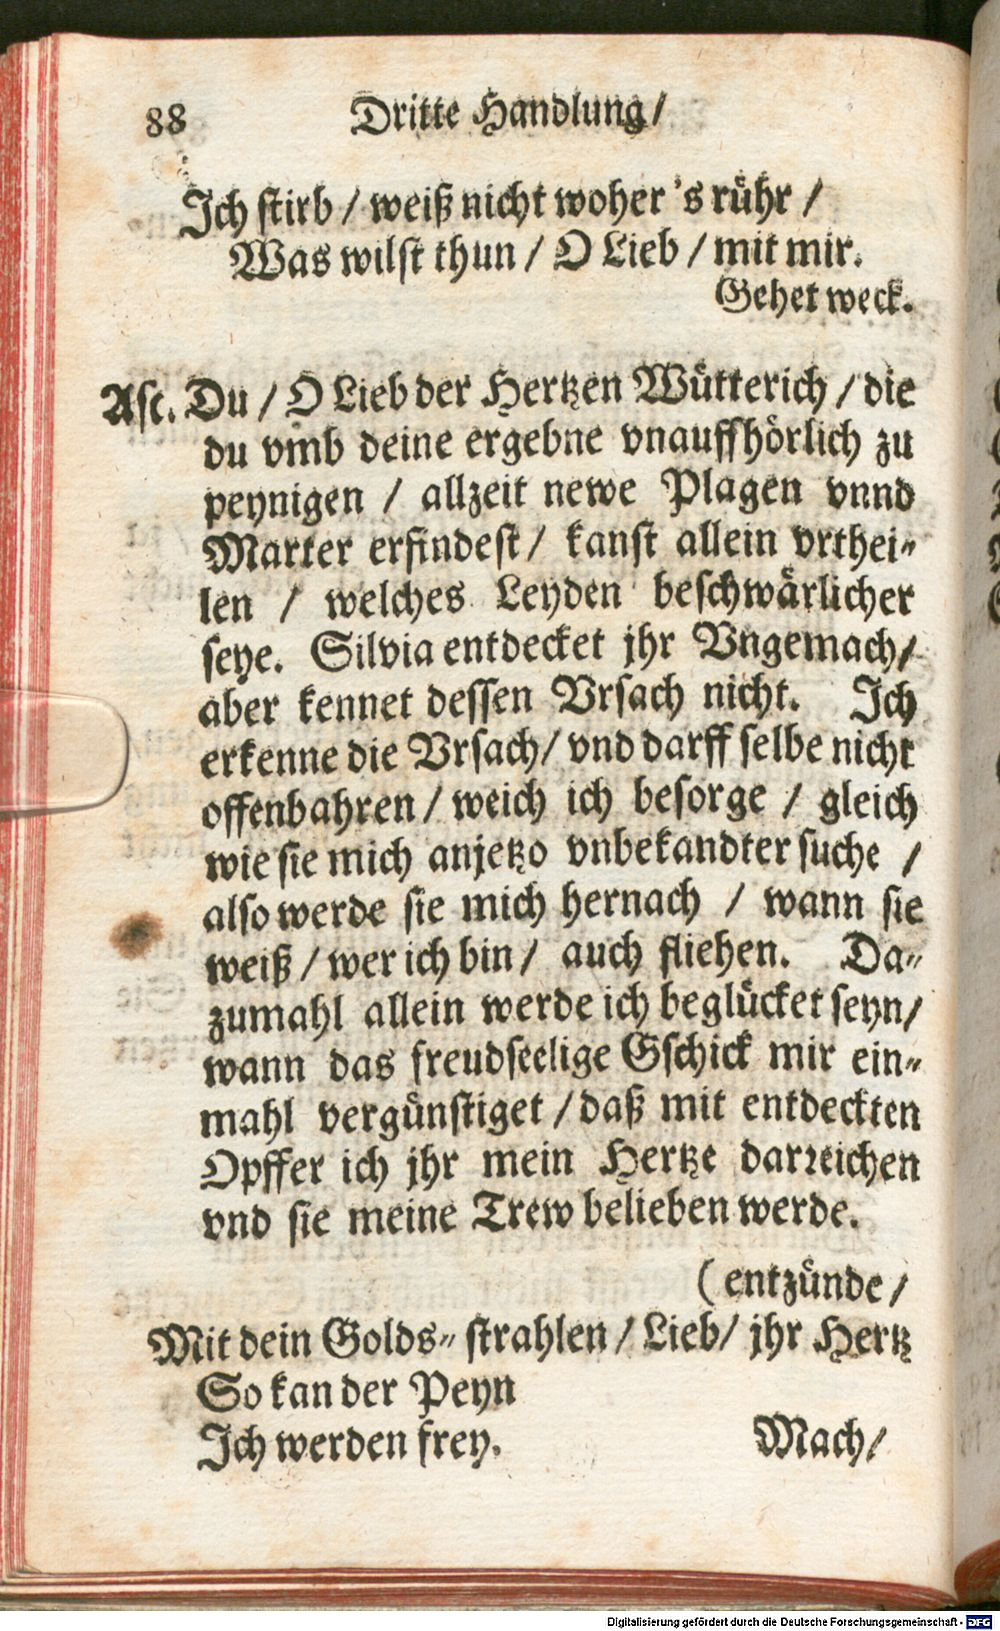 88 Dritte Handlung/
Ich stirb / weiß nicht woher 's rühr /
Was wilst thun / O Lieb / mit mir.
Gehet weck.
Asc. Du / O Lieb der Hertzen Wütterich / die
du vmb deine ergebne vnauffhörlich zu
peynigen / allzeit newe Plagen vnnd
Marter erfindest / kanst allein vrthei-
len / welches Leyden beschwärlicher
seye. Silvia entdecket jhr Vngemach/
aber kennet dessen Vrsach nicht. Ich
erkenne die Vrsach/ vnd darff selbe nicht
offenbahren / weich ich besorge / gleich
wie sie mich anjetzo vnbekandter suche /
also werde sie mich hernach / wann sie
weiß / wer ich bin / auch fliehen. Da-
zumahl allein werde ich beglücket seyn/
wann das freudseelige Gschick mir ein-
mahl vergünstiget / daß mit entdeckten
Opffer ich jhr mein Hertze darreichen
vnd sie meine Trew belieben werde.
( entzünde /
Mit dein Golds- strahlen / Lieb/ jhr Hertz
So kan der Peyn
Ich werden frey.
Mach/
Digitalisierung gefördert durch die Deutsche Forschungsgemeinschaft - DFG